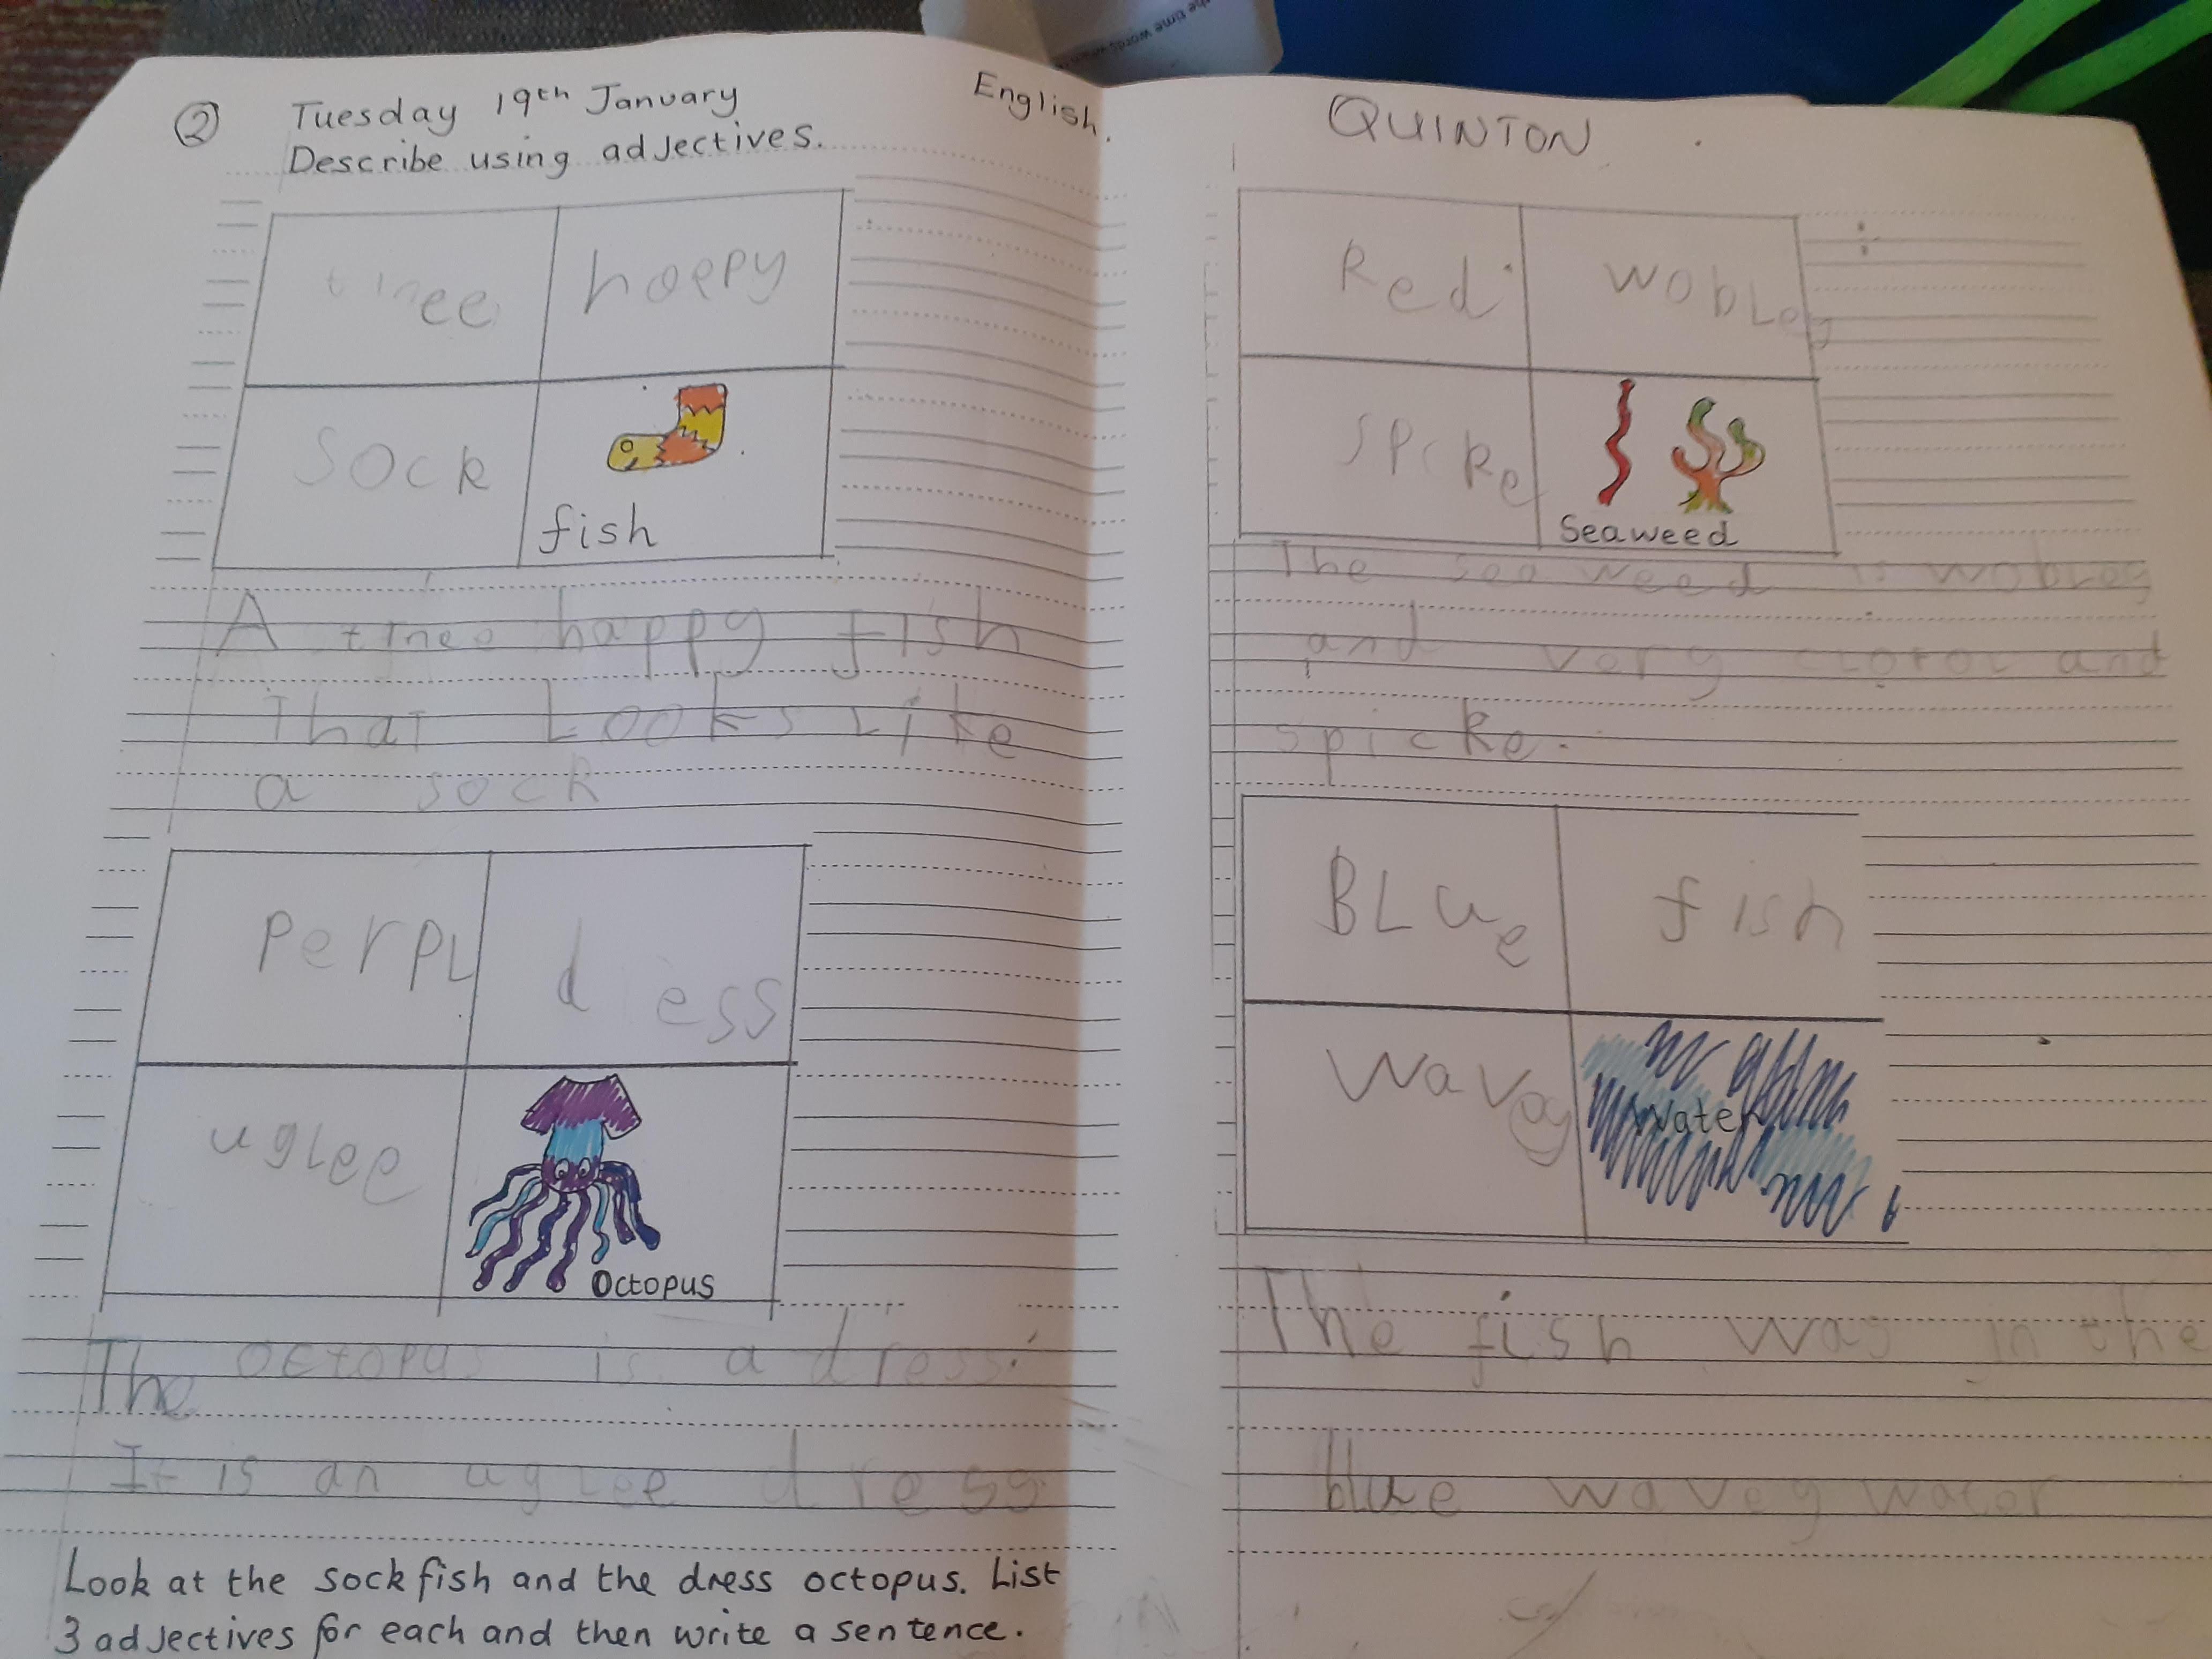 ② Tuesday 19th January English.
Describe using adjectives.
tinee hoppy
sock fish
A tinee happy fish
that Looks like
a sock
perpl dress
uglee Octopus
The octopus is a dress.
It is an uglee dress
Look at the sock fish and the dress octopus. List
3 adjectives for each and then write a sentence.
QUINTON
Red wobley
spicke Seaweed
The sea weed is wobley
and very and
spicke.
BLue fish
wavey water
The fish was in the
blue wavey water
the time words